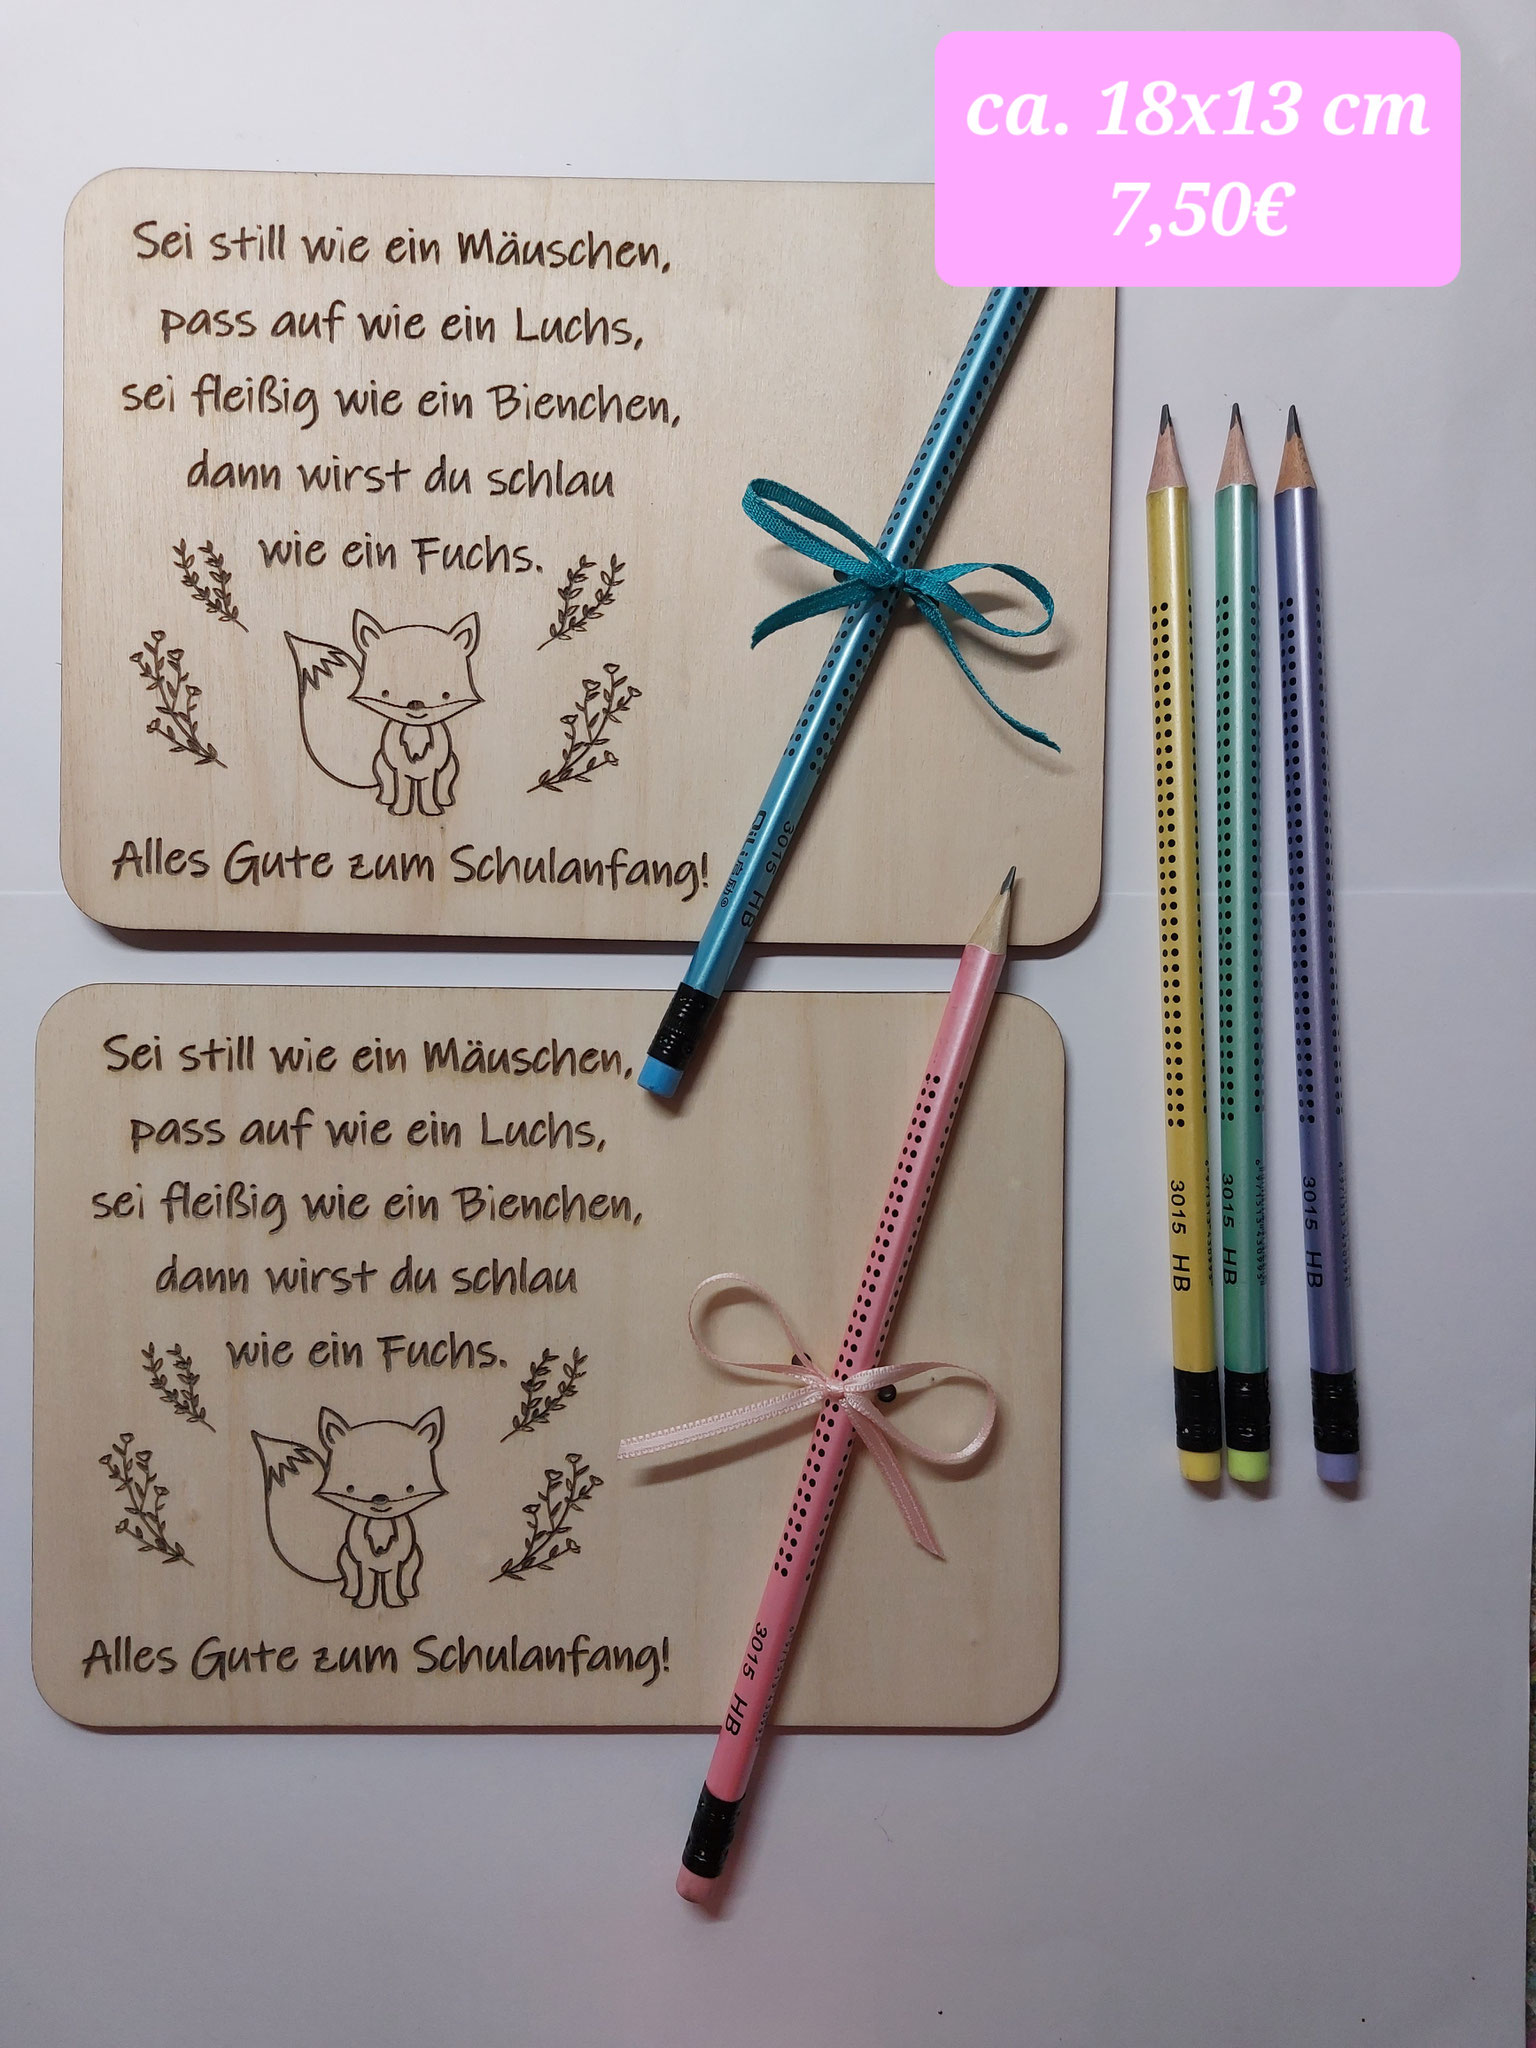 ca. 18x13 cm
7,50€
Sei still wie ein Mäuschen,
pass auf wie ein Luchs,
sei fleißig wie ein Bienchen,
dann wirst du schlau
wie ein Fuchs.
Alles Gute zum Schulanfang!
3015 HB
Sei still wie ein Mäuschen,
pass auf wie ein Luchs,
sei fleißig wie ein Bienchen,
dann wirst du schlau
wie ein Fuchs.
Alles Gute zum Schulanfang!
3015 HB
3015 HB
3015 HB
3015 HB